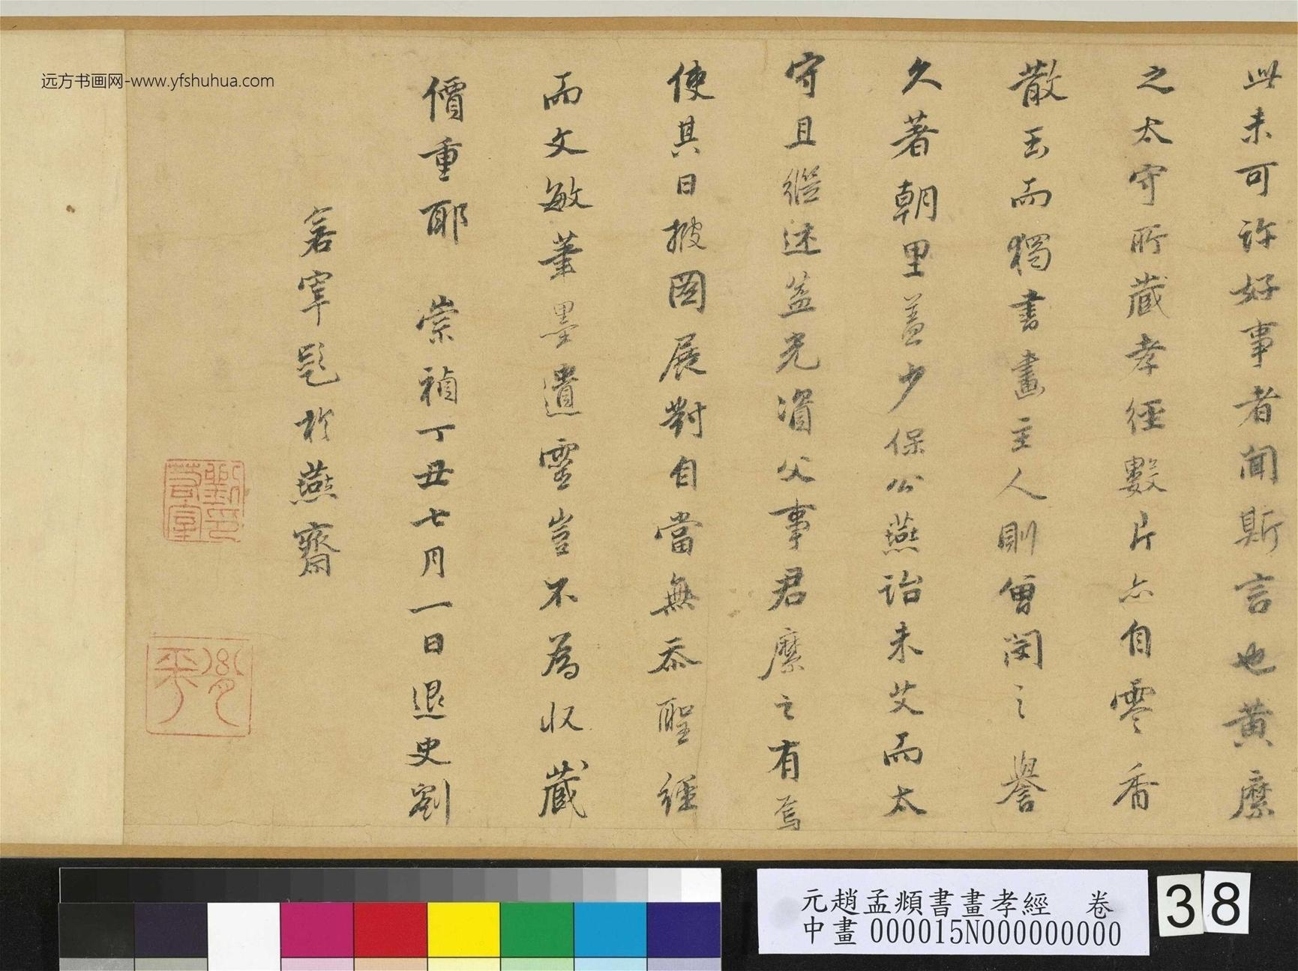 此未可許好事者聞斯言也黃麋
之太守所藏孝經數片亦自零香
散玉而獨書畫主人則曾閔之譽
久著朝里蓋少保公燕詒未艾而太
守且繼述益光資父事君麋之有焉
使其日披圖展對自當無忝聖經
而文敏筆墨遺靈豈不為收藏
價重耶 崇禎丁丑七月一日退史劉
若宰題於燕齋
劉若宰印
胤平
远方书画网-www.yfshuhua.com
元趙孟頫書畫孝經 卷
中畫 000015N000000000
38